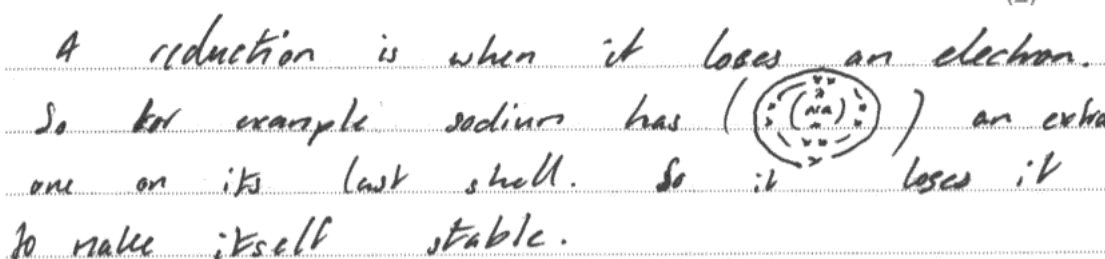 A reduction is when it loses an electron.
So for example sodium has ( (Na) ) an extra
one on its last shell. So it loses it
to make itself stable.